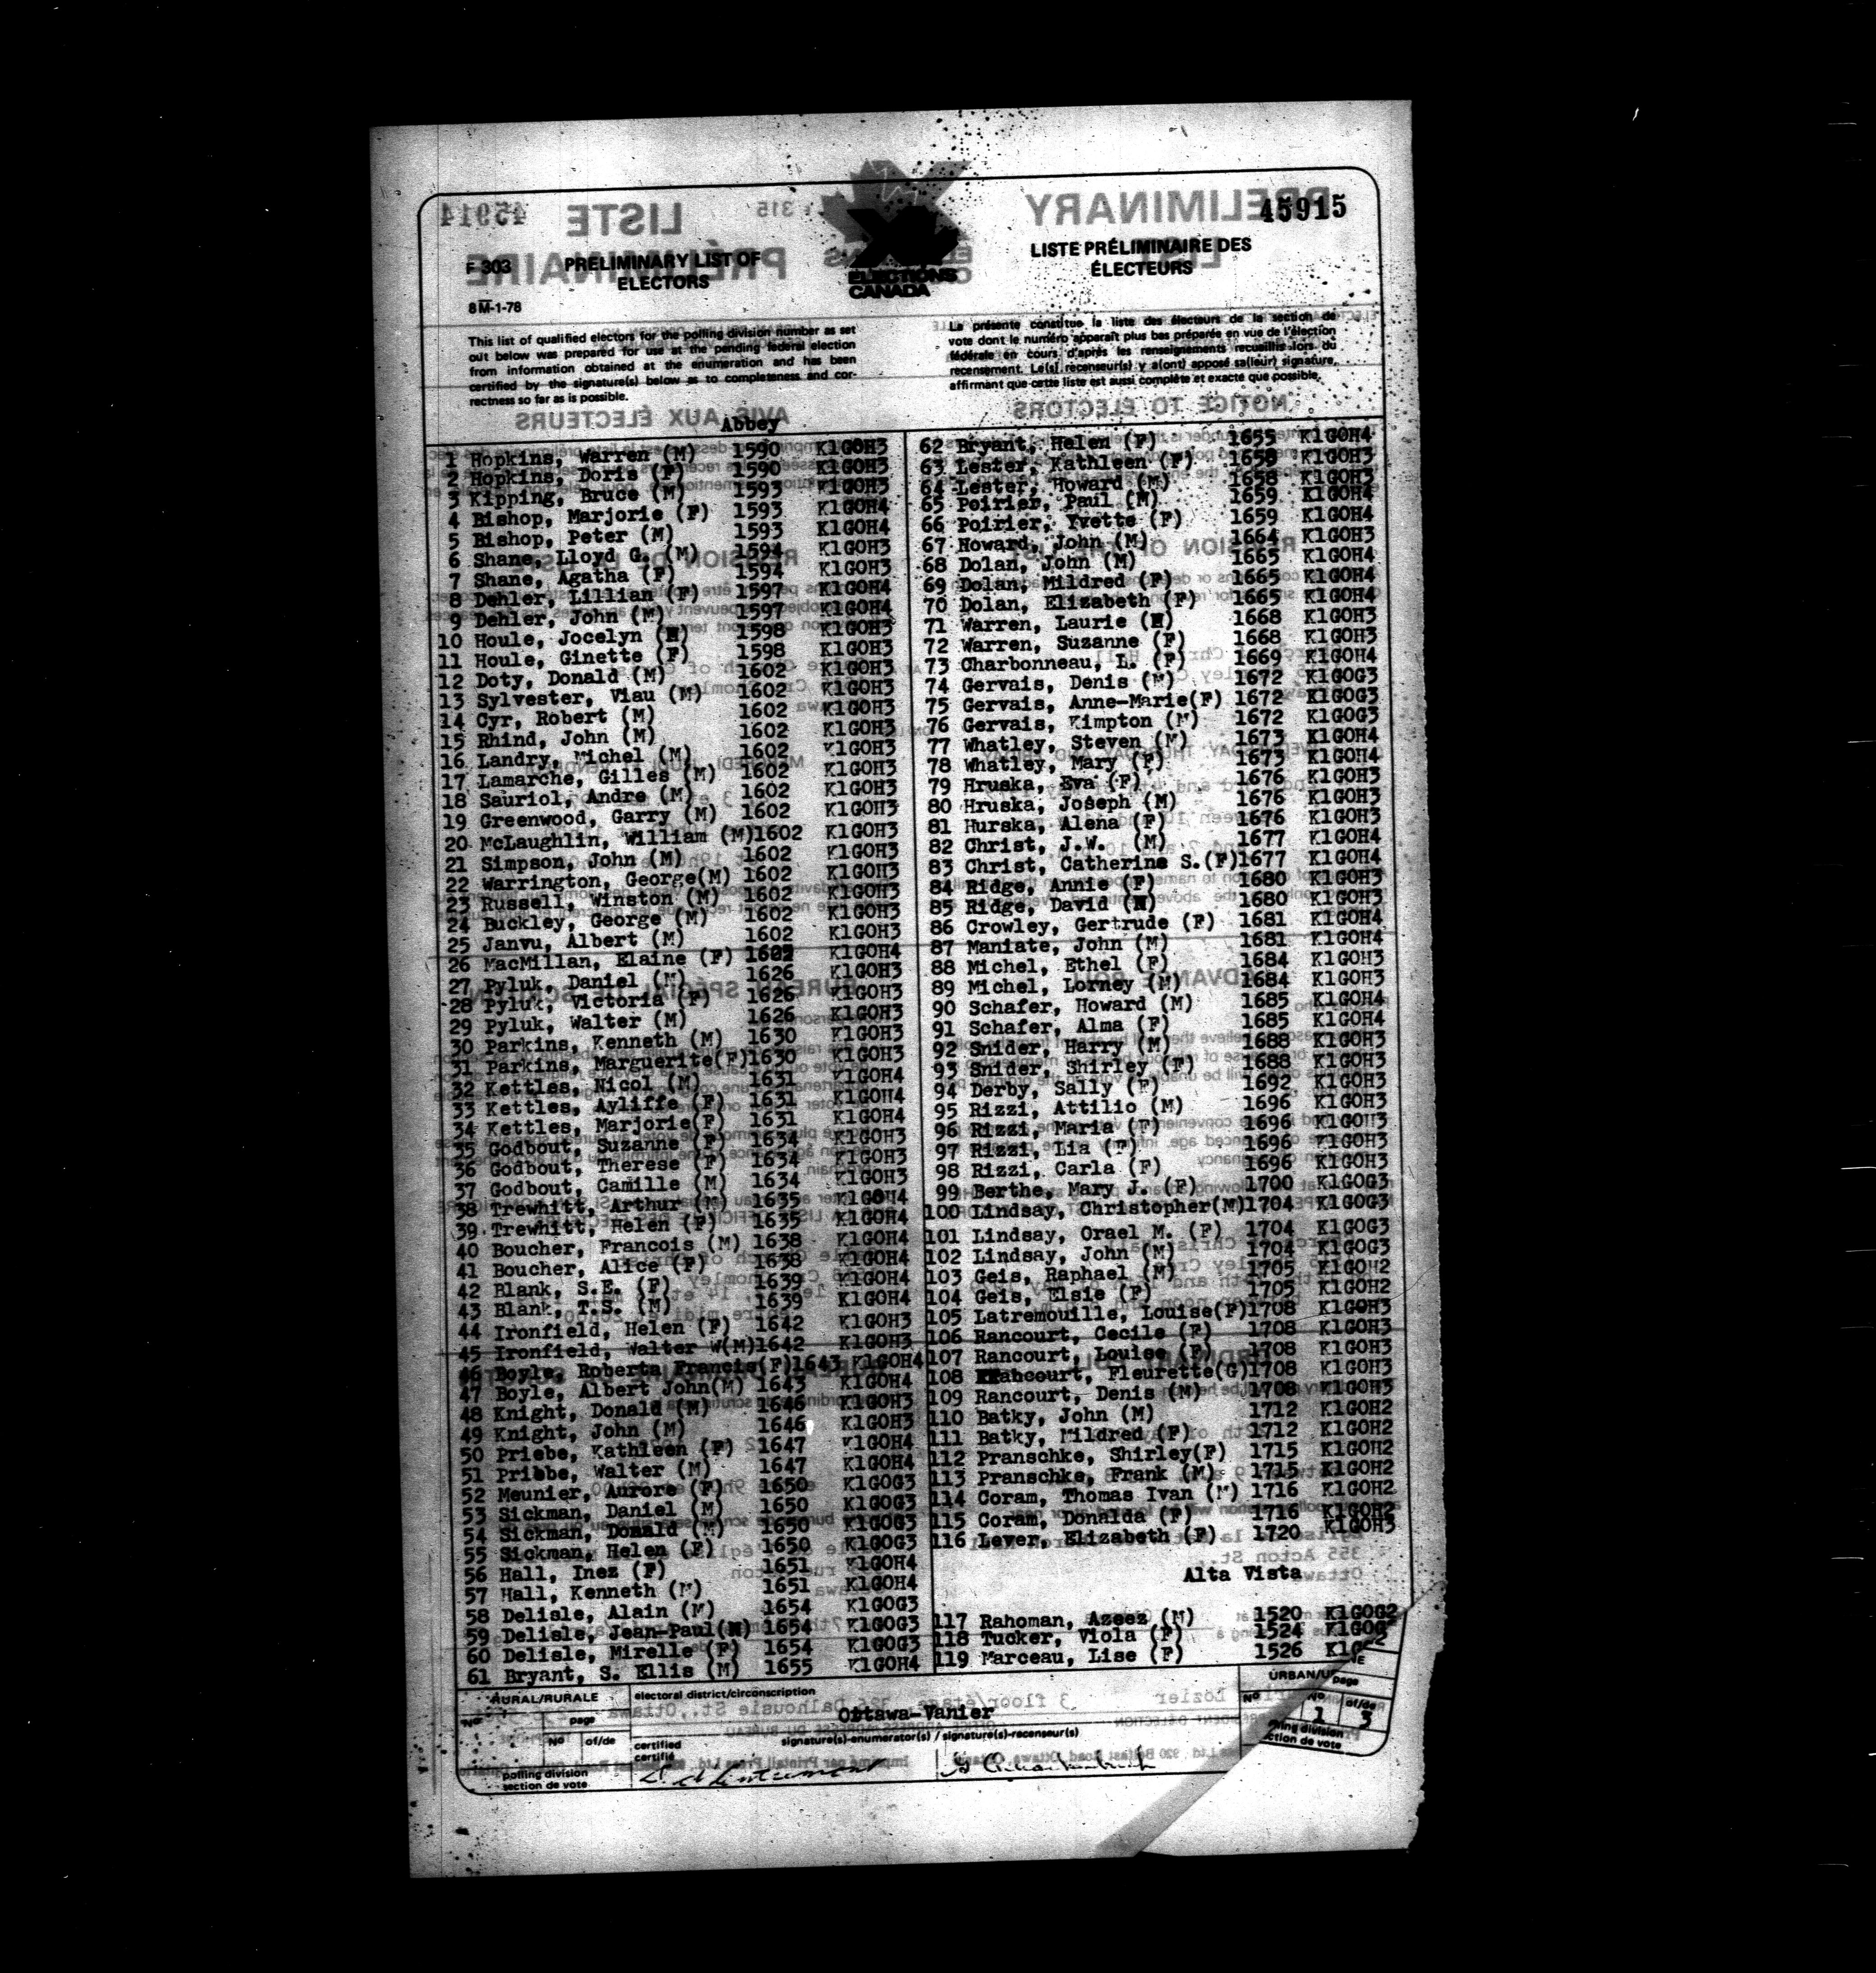 45915
F 303
PRELIMINARY LIST OF
ELECTORS
8M-1-78
ELECTIONS
CANADA
LISTE PRÉLIMINAIRE DES
ÉLECTEURS
This list of qualified electors for the polling division number as set
out below was prepared for use at the pending federal election
from information obtained at the enumeration and has been
certified by the signature(s) below as to completeness and cor-
rectness so far as is possible.
La présente constitue la liste des électeurs de la section de
vote dont le numéro apparaît plus bas préparée en vue de l'élection
fédérale en cours d'après les renseignements recueillis lors du
recensement. Le(s) recenseur(s) y a(ont) apposé sa(leur) signature,
affirmant que cette liste est aussi complète et exacte que possible.
Abbey
1 Hopkins, Warren (M) 1590 K1G0H3
2 Hopkins, Doris (F) 1590 K1G0H3
3 Kipping, Bruce (M) 1593 K1G0H3
4 Bishop, Marjorie (F) 1593 K1G0H4
5 Bishop, Peter (M) 1593 K1G0H4
6 Shane, Lloyd G. (M) 1594 K1G0H3
7 Shane, Agatha (F) 1594 K1G0H3
8 Dehler, Lillian (F) 1597 K1G0H4
9 Dehler, John (M) 1597 K1G0H4
10 Houle, Jocelyn (M) 1598 K1G0H3
11 Houle, Ginette (F) 1598 K1G0H3
12 Doty, Donald (M) 1602 K1G0H3
13 Sylvester, Viau (M) 1602 K1G0H3
14 Cyr, Robert (M) 1602 K1G0H3
15 Rhind, John (M) 1602 K1G0H3
16 Landry, Michel (M) 1602 K1G0H3
17 Lamarche, Gilles (M) 1602 K1G0H3
18 Sauriol, Andre (M) 1602 K1G0H3
19 Greenwood, Garry (M) 1602 K1G0H3
20 McLaughlin, William (M)1602 K1G0H3
21 Simpson, John (M) 1602 K1G0H3
22 Warrington, George(M) 1602 K1G0H3
23 Russell, Winston (M) 1602 K1G0H3
24 Buckley, George (M) 1602 K1G0H3
25 Janvu, Albert (M) 1602 K1G0H3
26 MacMillan, Elaine (F) K1G0H4
27 Pyluk, Daniel (M) 1626 K1G0H3
28 Pyluk, Victoria (F) 1626 K1G0H3
29 Pyluk, Walter (M) 1626 K1G0H3
30 Parkins, Kenneth (M) 1630 K1G0H3
31 Parkins, Marguerite(F)1630 K1G0H3
32 Kettles, Nicol (M) 1631 K1G0H4
33 Kettles, Ayliffe (F) 1631 K1G0H4
34 Kettles, Marjorie(F) 1631 K1G0H4
35 Godbout, Suzanne (F) 1634 K1G0H3
36 Godbout, Therese (F) 1634 K1G0H3
37 Godbout, Camille (M) 1634 K1G0H3
38 Trewhitt, Arthur (M) 1635 K1G0H4
39 Trewhitt, Helen (F) 1635 K1G0H4
40 Boucher, Francois (M) 1638 K1G0H4
41 Boucher, Alice (F) 1638 K1G0H4
42 Blank, S.E. (F) 1639 K1G0H4
43 Blank, T.S. (M) 1639 K1G0H4
44 Ironfield, Helen (F) 1642 K1G0H3
45 Ironfield, Walter W(M)1642 K1G0H3
46 Boyle, Roberta Francis(F)1643 K1G0H4
47 Boyle, Albert John(M) 1643 K1G0H4
48 Knight, Donald (M) 1646 K1G0H3
49 Knight, John (M) 1646 K1G0H3
50 Priebe, Kathleen (F) 1647 K1G0H4
51 Priebe, Walter (M) 1647 K1G0H4
52 Meunier, Aurore (F) 1650 K1G0G3
53 Sickman, Daniel (M) 1650 K1G0G3
54 Sickman, Donald (M) 1650 K1G0G3
55 Sickman, Helen (F) 1650 K1G0G3
56 Hall, Inez (F) 1651 K1G0H4
57 Hall, Kenneth (M) 1651 K1G0H4
58 Delisle, Alain (M) 1654 K1G0G3
59 Delisle, Jean-Paul(M) 1654 K1G0G3
60 Delisle, Mirelle (F) 1654 K1G0G3
61 Bryant, S. Ellis (M) 1655 K1G0H4
62 Bryant, Helen (F) 1655 K1G0H4
63 Lester, Kathleen (F) 1658 K1G0H3
64 Lester, Howard (M) 1658 K1G0H3
65 Poirier, Paul (M) 1659 K1G0H4
66 Poirier, Yvette (F) 1659 K1G0H4
67 Howard, John (M) 1664 K1G0H3
68 Dolan, John (M) 1665 K1G0H4
69 Dolan, Mildred (F) 1665 K1G0H4
70 Dolan, Elizabeth (F) 1665 K1G0H4
71 Warren, Laurie (M) 1668 K1G0H3
72 Warren, Suzanne (F) 1668 K1G0H3
73 Charbonneau, L. (F) 1669 K1G0H4
74 Gervais, Denis (M) 1672 K1G0G3
75 Gervais, Anne-Marie(F) 1672 K1G0G3
76 Gervais, Kimpton (M) 1672 K1G0G3
77 Whatley, Steven (M) 1673 K1G0H4
78 Whatley, Mary (F) 1673 K1G0H4
79 Hruska, Eva (F) 1676 K1G0H3
80 Hruska, Joseph (M) 1676 K1G0H3
81 Hurska, Alena (F) 1676 K1G0H3
82 Christ, J.W. (M) 1677 K1G0H4
83 Christ, Catherine S.(F)1677 K1G0H4
84 Ridge, Annie (F) 1680 K1G0H3
85 Ridge, David (M) 1680 K1G0H3
86 Crowley, Gertrude (F) 1681 K1G0H4
87 Maniate, John (M) 1681 K1G0H4
88 Michel, Ethel (F) 1684 K1G0H3
89 Michel, Lorney (M) 1684 K1G0H3
90 Schafer, Howard (M) 1685 K1G0H4
91 Schafer, Alma (F) 1685 K1G0H4
92 Snider, Harry (M) 1688 K1G0H3
93 Snider, Shirley (F) 1688 K1G0H3
94 Derby, Sally (F) 1692 K1G0H3
95 Rizzi, Attilio (M) 1696 K1G0H3
96 Rizzi, Maria (F) 1696 K1G0H3
97 Rizzi, Lia (F) 1696 K1G0H3
98 Rizzi, Carla (F) 1696 K1G0H3
99 Berthe, Mary J. (F) 1700 K1G0G3
100 Lindsay, Christopher(M)1704 K1G0G3
101 Lindsay, Orael M. (F) 1704 K1G0G3
102 Lindsay, John (M) 1704 K1G0G3
103 Geis, Raphael (M) 1705 K1G0H2
104 Geis, Elsie (F) 1705 K1G0H2
105 Latremouille, Louise(F)1708 K1G0H3
106 Rancourt, Cecile (F) 1708 K1G0H3
107 Rancourt, Louise (F) 1708 K1G0H3
108 Rancourt, Fleurette(G)1708 K1G0H3
109 Rancourt, Denis (M) 1708 K1G0H3
110 Batky, John (M) 1712 K1G0H2
111 Batky, Mildred (F) 1712 K1G0H2
112 Pranschke, Shirley(F) 1715 K1G0H2
113 Pranschke, Frank (M) 1715 K1G0H2
114 Coram, Thomas Ivan (M) 1716 K1G0H2
115 Coram, Donalda (F) 1716 K1G0H2
116 Lever, Elizabeth (F) 1720 K1G0H3
Alta Vista
117 Rahoman, Azeez (M) 1520 K1G0G2
118 Tucker, Viola (F) 1524 K1G0G
119 Marceau, Lise (F) 1526
RURAL/RURALE
No
page
No of/de
polling division
section de vote
electoral district/circonscription
Ottawa-Vanier
signature(s)-enumerator(s) / signature(s)-recenseur(s)
certified
certifié
URBAN/U
No
page
No of/de
1 3